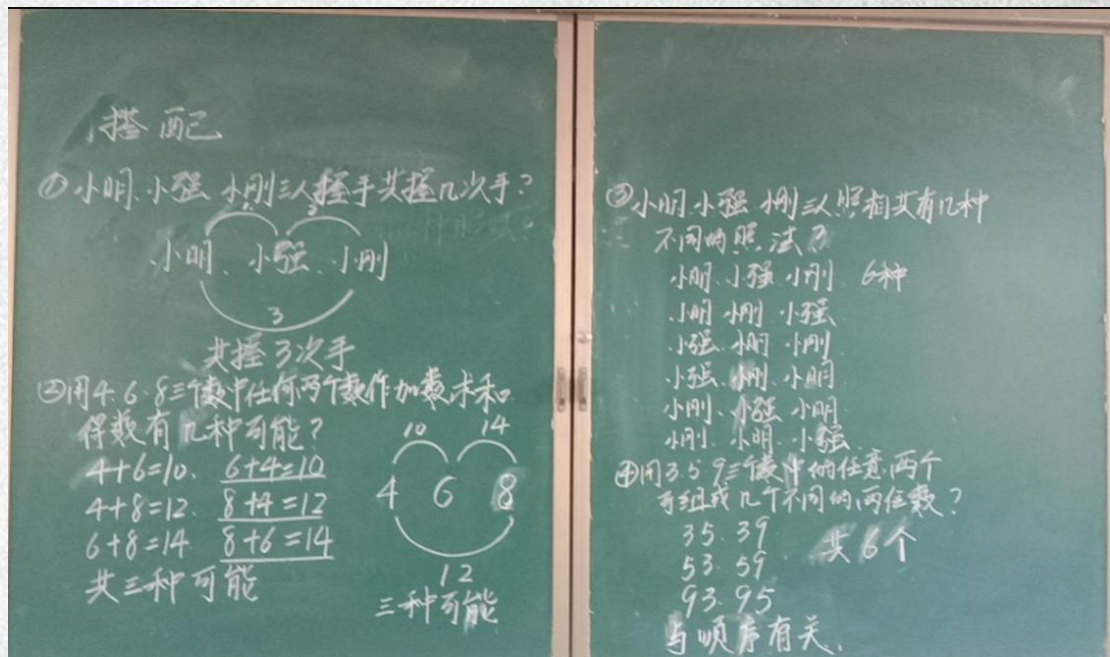 搭配
①小明、小强、小刚三人握手共握几次手?
1 2
小明、小强、小刚
3
共握3次手
②用4.6.8三个数中任何两个数作加数求和
得数有几种可能?
4+6=10. 6+4=10
4+8=12. 8+4=12
6+8=14 8+6=14
共三种可能
10 14
4 6 8
12
三种可能
③小明.小强.小刚三人照相共有几种
不同的照法?
小明.小强.小刚 6种
小明.小刚.小强
小强.小明.小刚
小强.小刚.小明
小刚.小强.小明
小刚.小明.小强
④用3.5.9三个数中的任意两个
可组成几个不同的两位数?
35.39
53.59
93.95
共6个
与顺序有关.